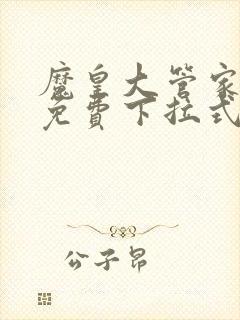 魔皇大管家
免費下拉式
公子昂